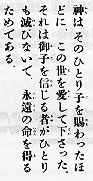 神はそのひとり子を賜わったほ
どに、この世を愛して下さった。
それは御子を信じる者がひとり
も滅びないで、永遠の命を得る
ためである。